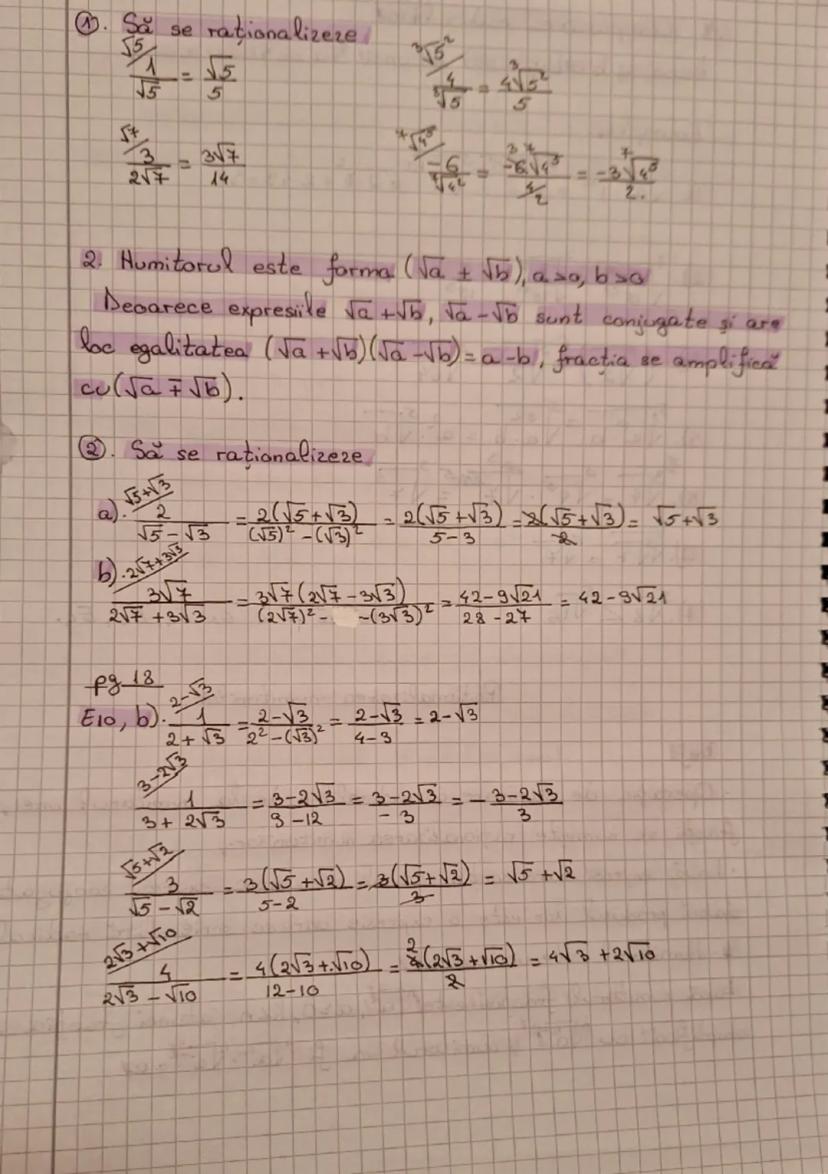 ①. Să se raționalizeze
√5/ 1/√5 = √5/5
³√5²/ 4/³√5 = 4³√5²/5
√7/ 3/2√7 = 3√7/14
⁷√4⁵/ -6/⁷√4² = -6⁷√4⁵/4 = -3⁷√4⁵/2.
2. Numitorul este forma (√a ± √b), a>0, b>0
Deoarece expresiile √a+√b, √a-√b sunt conjugate și are
loc egalitatea (√a+√b)(√a-√b)=a-b, fracția se amplifică
cu (√a ∓ √b).
②. Să se raționalizeze
a). √5+√3/ 2/(√5-√3) = 2(√5+√3)/((√5)²-(√3)²) = 2(√5+√3)/(5-3) = 2(√5+√3)/2 = √5+√3
b). 2√7+3√3/ 3√7/(2√7+3√3) = 3√7(2√7-3√3)/((2√7)²- -(3√3)²) = (42-9√21)/(28-27) = 42-9√21
pg 18
E10, b). 2-√3/ 1/(2+√3) = (2-√3)/(2²-(√3)²) = (2-√3)/(4-3) = 2-√3
3-2√3/ 1/(3+2√3) = (3-2√3)/(9-12) = (3-2√3)/(-3) = -(3-2√3)/3
√5+√2/ 3/(√5-√2) = 3(√5+√2)/(5-2) = 3(√5+√2)/3 = √5+√2
2√3+√10/ 4/(2√3-√10) = 4(2√3+√10)/(12-10) = 4(2√3+√10)/2 = 4√3+2√10